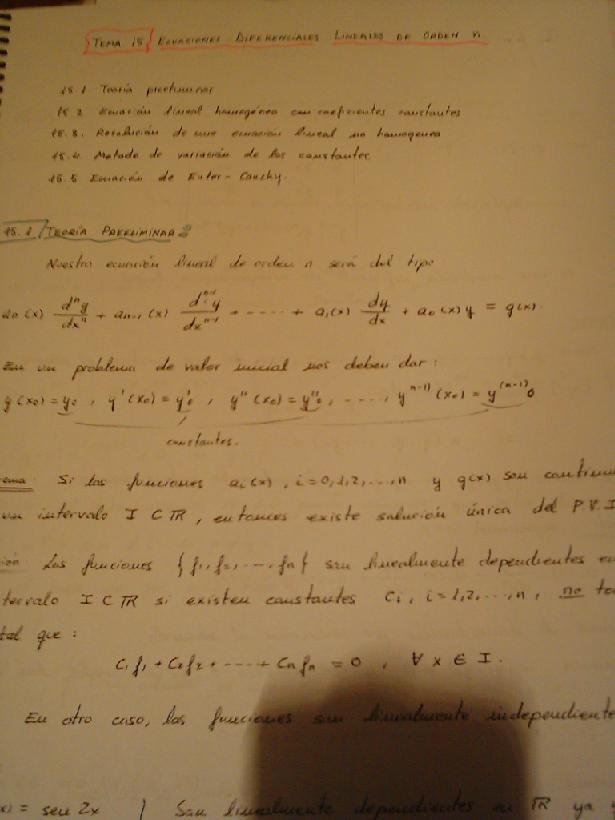 TEMA 15 ECUACIONES DIFERENCIALES LINEALES DE ORDEN n
15.1 Teoría preeliminar
15.2. Ecuación lineal homogénea con coeficientes constantes
15.3. Resolución de una ecuación lineal no homogenea
15.4. Metodo de variación de las constantes
15.5. Ecuación de Euler-Cauchy.
15.1 TEORÍA PREELIMINAR
Nuestra ecuación lineal de orden n será del tipo
an(x) dⁿy/dxⁿ + an-1(x) dⁿ⁻¹y/dxⁿ⁻¹ + ----- + a1(x) dy/dx + a0(x)y = g(x).
En un problema de valor inicial nos deben dar:
y(x0) = y0, y'(x0) = y'0, y''(x0) = y''0, ----, y^(n-1)(x0) = y^(n-1)0
constantes.
ema: Si las funciones ai(x), i=0,1,2,...,n y g(x) son continu
un intervalo I ⊂ ℝ, entonces existe solución única del P.V.I
ción Las funciones {f1, f2, ---, fn} son linealmente dependientes en
tervalo I ⊂ ℝ si existen constantes Ci, i=1,2,...,n, no to
tal que:
C1f1 + C2f2 + ---- + Cnfn = 0, ∀ x ∈ I.
En otro caso, las funciones son linealmente independiente
x) = sen 2x } Son linealmente dependientes en ℝ ya